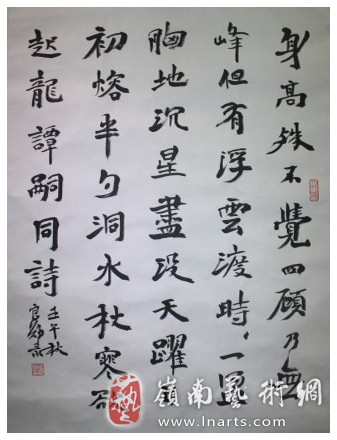 身高殊不覺四顧乃無
峰但有浮雲渡時、一盪
胸地沉星盡没天躍
初熔半勺洞水秋寒欲
起龍譚嗣同詩
壬午秋
嶺南藝術網
www.lnarts.com